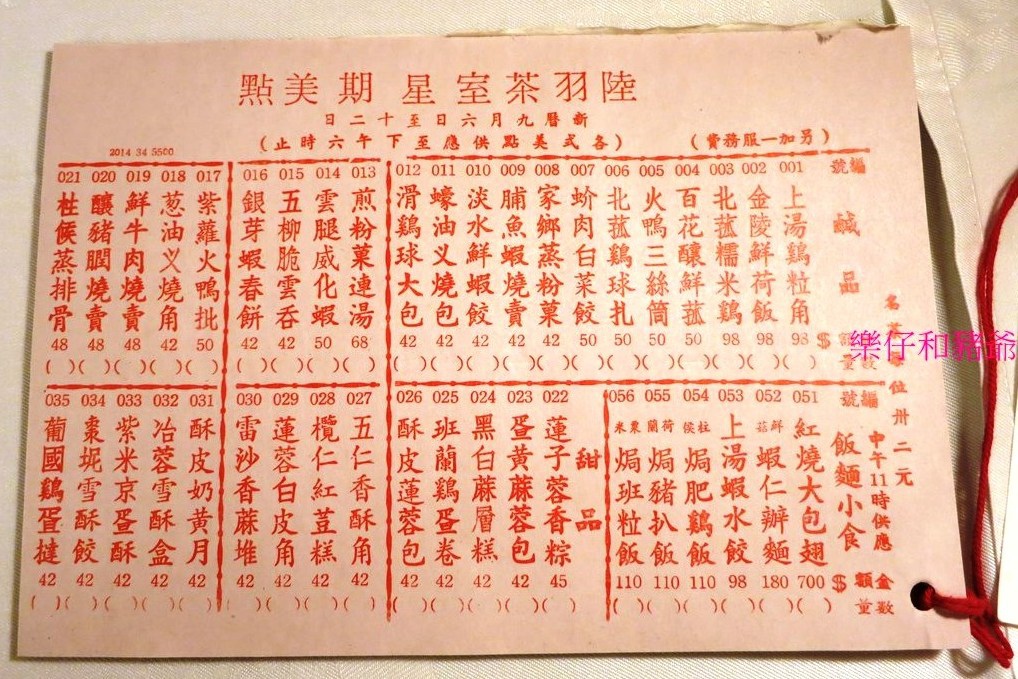 陸羽茶室星期美點
新曆九月六日至十二日
(另加一服務費)
(各式美點供應至下午六時止)
2014 34 5500
編號
鹹品
$
001 上湯鷄粒角 98 ( )
002 金陵鮮荷飯 98 ( )
003 北菰糯米鷄 98 ( )
004 百花釀鮮菰 50 ( )
005 火鴨三絲筒 50 ( )
006 北菰鷄球扎 50 ( )
007 蚧肉白菜餃 50 ( )
008 家鄉蒸粉菓 42 ( )
009 脯魚蝦燒賣 42 ( )
010 淡水鮮蝦餃 42 ( )
011 蠔油义燒包 42 ( )
012 滑鷄球大包 42 ( )
013 煎粉菓連湯 68 ( )
014 雲腿威化蝦 50 ( )
015 五柳脆雲吞 42 ( )
016 銀芽蝦春餅 42 ( )
017 紫蘿火鴨批 50 ( )
018 葱油义燒角 42 ( )
019 鮮牛肉燒賣 48 ( )
020 釀豬膶燒賣 48 ( )
021 柱侯蒸排骨 48 ( )
位卅二元
編號
中午11時供應
飯麵小食
$ 金額
數量
051 紅燒大包翅 700 ( )
052 鮮菇蝦仁辦麵 180 ( )
053 上湯蝦水餃 98 ( )
054 柱侯焗肥鷄飯 110 ( )
055 荷蘭焗豬扒飯 110 ( )
056 粟米焗班粒飯 110 ( )
甜品
022 蓮子蓉香粽 45 ( )
023 蛋黄蔴蓉包 42 ( )
024 黑白蔴層糕 42 ( )
025 班蘭鷄蛋卷 42 ( )
026 酥皮蓮蓉包 42 ( )
027 五仁香酥角 42 ( )
028 欖仁紅荳糕 42 ( )
029 蓮蓉白皮角 42 ( )
030 雷沙香蔴堆 42 ( )
031 酥皮奶黄月 42 ( )
032 冶蓉雪酥盒 42 ( )
033 紫米京蛋酥 42 ( )
034 棗坭雪酥餃 42 ( )
035 葡國鷄蛋撻 42 ( )
樂仔和豬爺